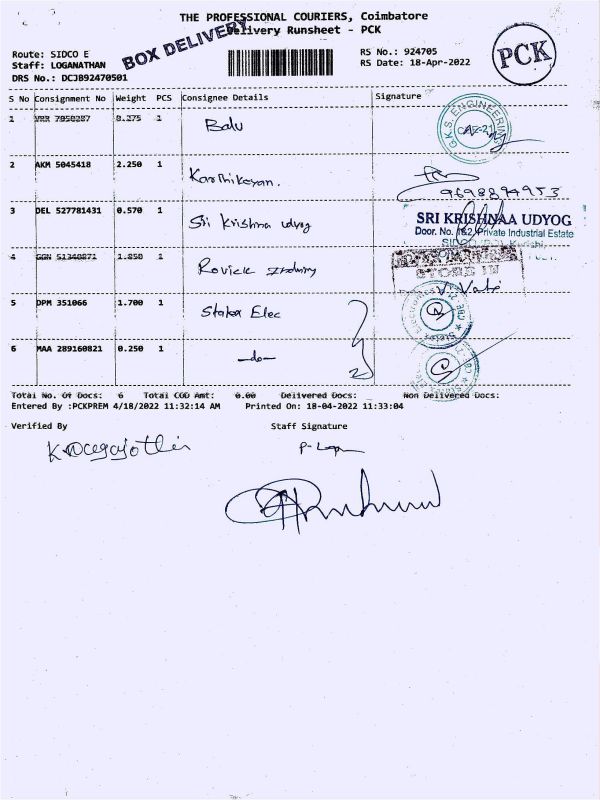 THE PROFESSIONAL COURIERS, Coimbatore
Delivery Runsheet - PCK
BOX DELIVERY
PCK
Route: SIDCO E
Staff: LOGANATHAN
DRS No.: DCJB92470501
RS No.: 924705
RS Date: 18-Apr-2022
S No Consignment No Weight PCS Consignee Details Signature
1 VRR 7950287 0.275 1 Balu
G.K.S. ENGINEERING
2 AKM 5045418 2.250 1 Karthikeyan.
9698894953
3 DEL 527781431 0.570 1 Sri Krishna udyog
SRI KRISHNAA UDYOG
Door. No. 182, Private Industrial Estate
4 GGN 51340871 1.850 1
STORE IN
5 DPM 351066 1.700 1 Stator Elec
6 MAA 289160821 0.250 1 -do-
Total No. Of Docs: 6 Total COD Amt: 0.00 Delivered Docs: Non Delivered Docs:
Entered By :PCKPREM 4/18/2022 11:32:14 AM Printed On: 18-04-2022 11:33:04
Verified By Staff Signature